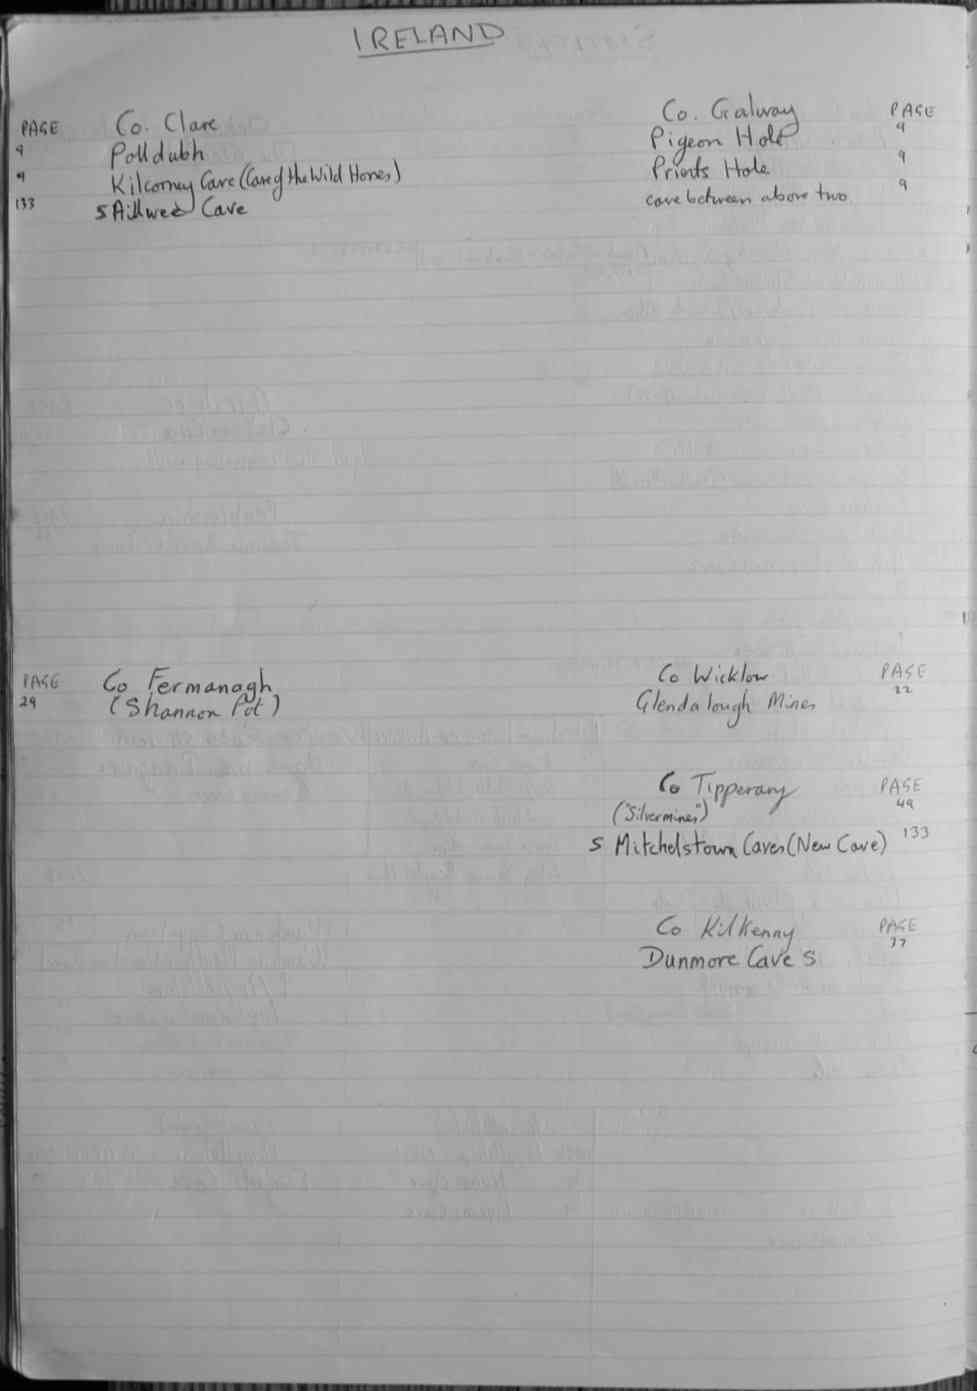 IRELAND
PAGE Co. Clare
9 Polldubh
9 Kilcorney Cave (Cave of the Wild Horses)
133 S Aillwee Cave
Co. Galway PAGE
Pigeon Hole 9
Priests Hole 9
cave between above two 9
PAGE Co Fermanagh
29 (Shannon Pot)
Co Wicklow PAGE
Glendalough Mines 22
Co Tipperary PAGE
("Silvermines") 49
S Mitchelstown Caves (New Cave) 133
Co Kilkenny PAGE
Dunmore Cave S